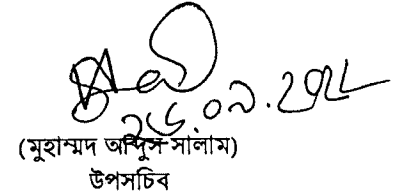 ২৬.০৯.২০২২
(মুহাম্মদ আব্দুস সালাম)
উপসচিব